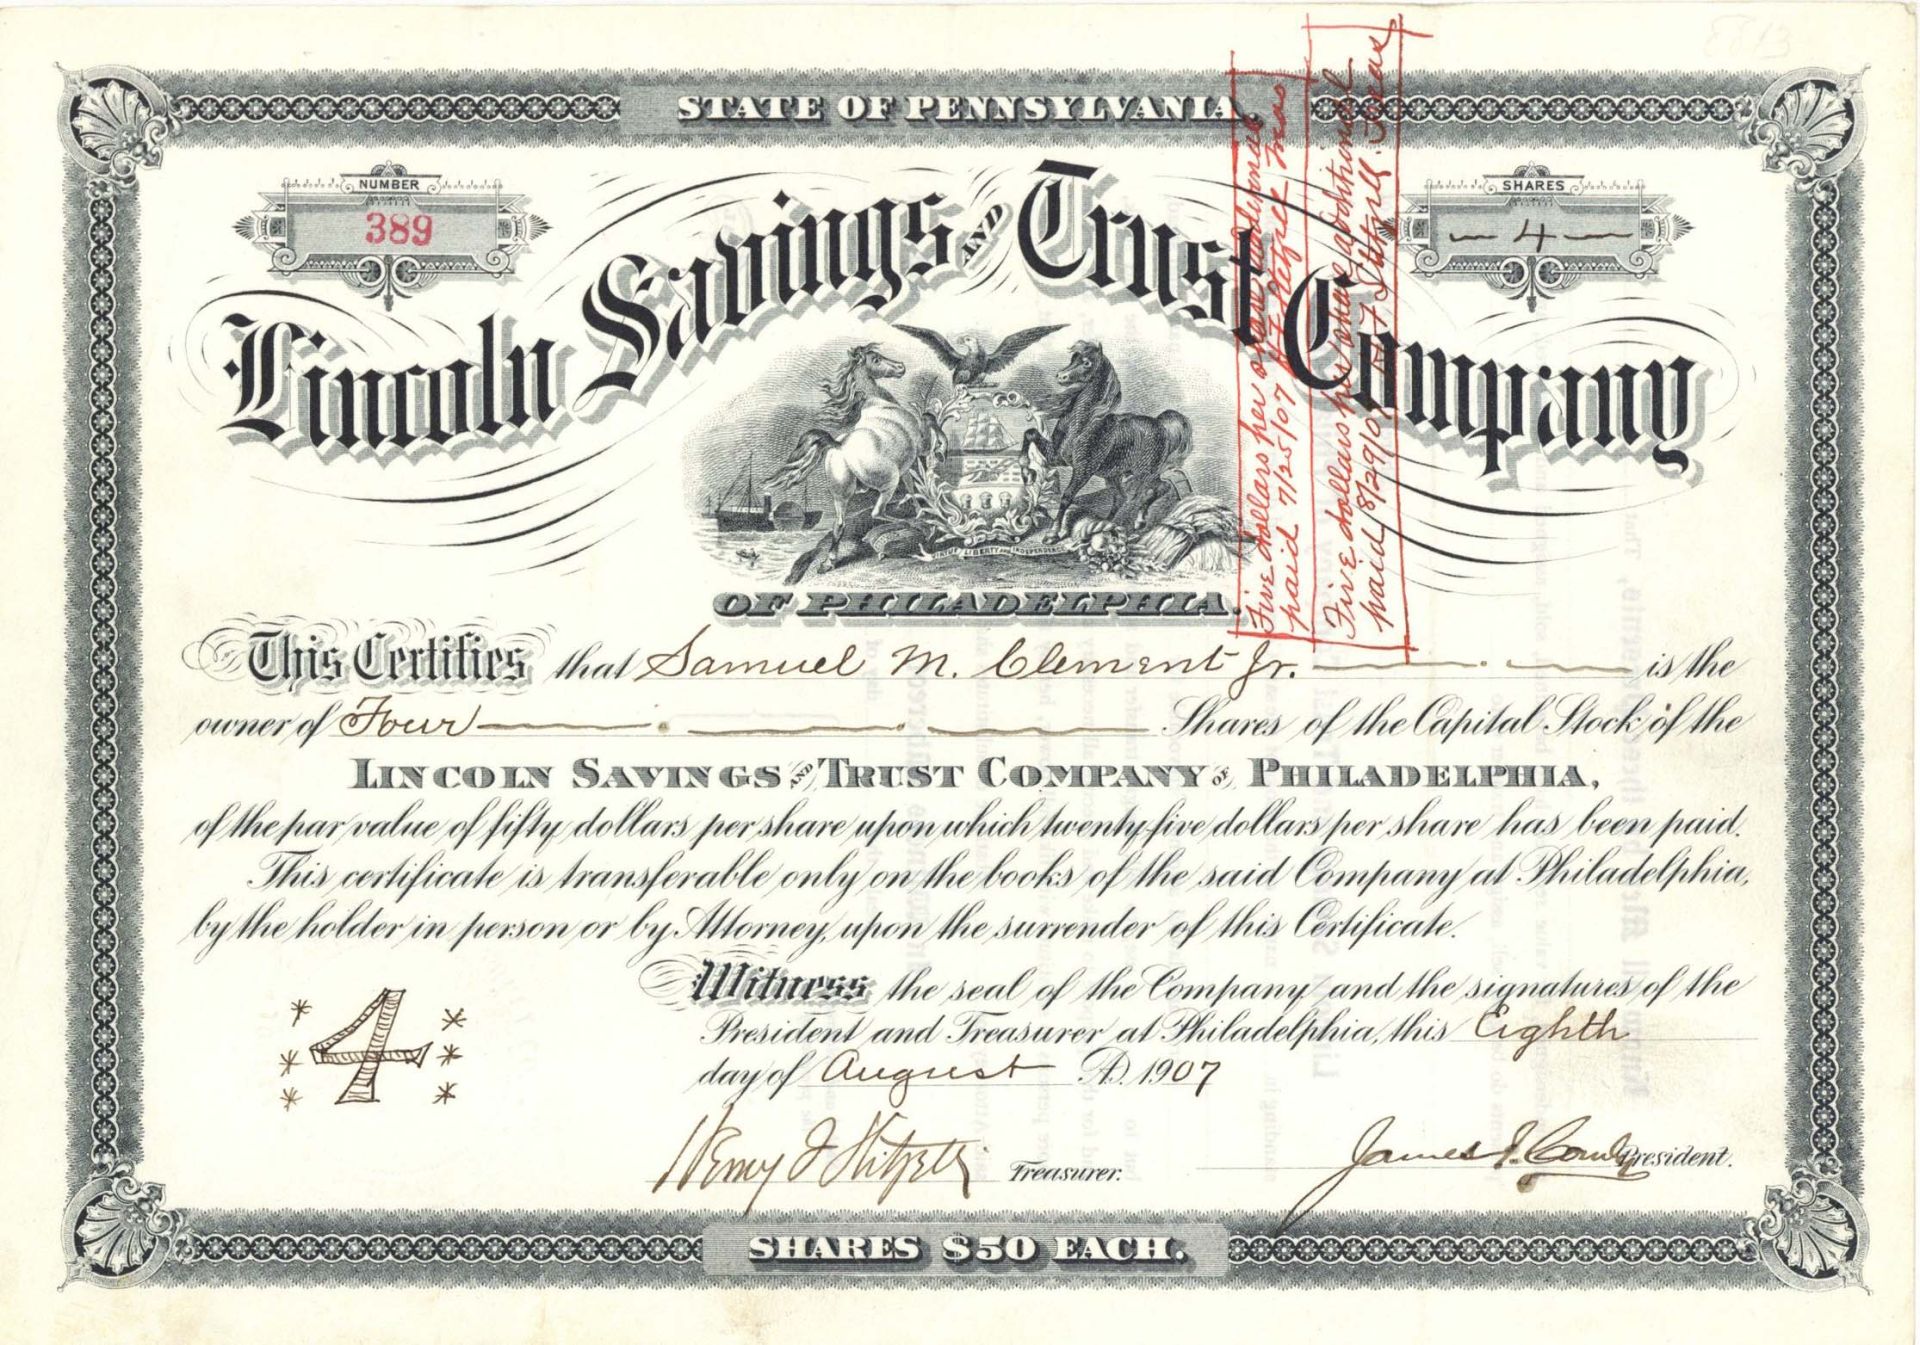 STATE OF PENNSYLVANIA
NUMBER
389
SHARES
— 4 —
Lincoln Savings AND Trust Company
VIRTUE LIBERTY AND INDEPENDENCE
OF PHILADELPHIA.
Five dollars per share additional
paid 7/25/07 Treas
Five dollars per share additional
paid 8/29/07 Treas
This Certifies that Samuel M. Clement Jr. is the
owner of Four Shares of the Capital Stock of the
LINCOLN SAVINGS AND TRUST COMPANY OF PHILADELPHIA,
of the par value of fifty dollars per share upon which twenty five dollars per share has been paid.
This certificate is transferable only on the books of the said Company at Philadelphia,
by the holder in person or by Attorney, upon the surrender of this Certificate.
Witness the seal of the Company and the signatures of the
President and Treasurer at Philadelphia, this Eighth
day of August A.D. 1907
4
Henry Treasurer.
James President.
SHARES $50 EACH.